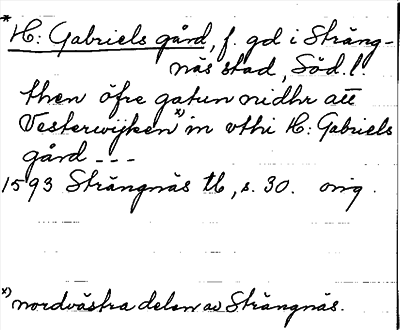 * H: Gabriels gård, f. gd i Sträng-
näs stad, Söd. l.
then öfre gatun nidhr att
Vesterwijken x) in vthi H: Gabriels
gård - - -
1593 Strängnäs tb, s. 30. orig.
x) nordvästra delen av Strängnäs.